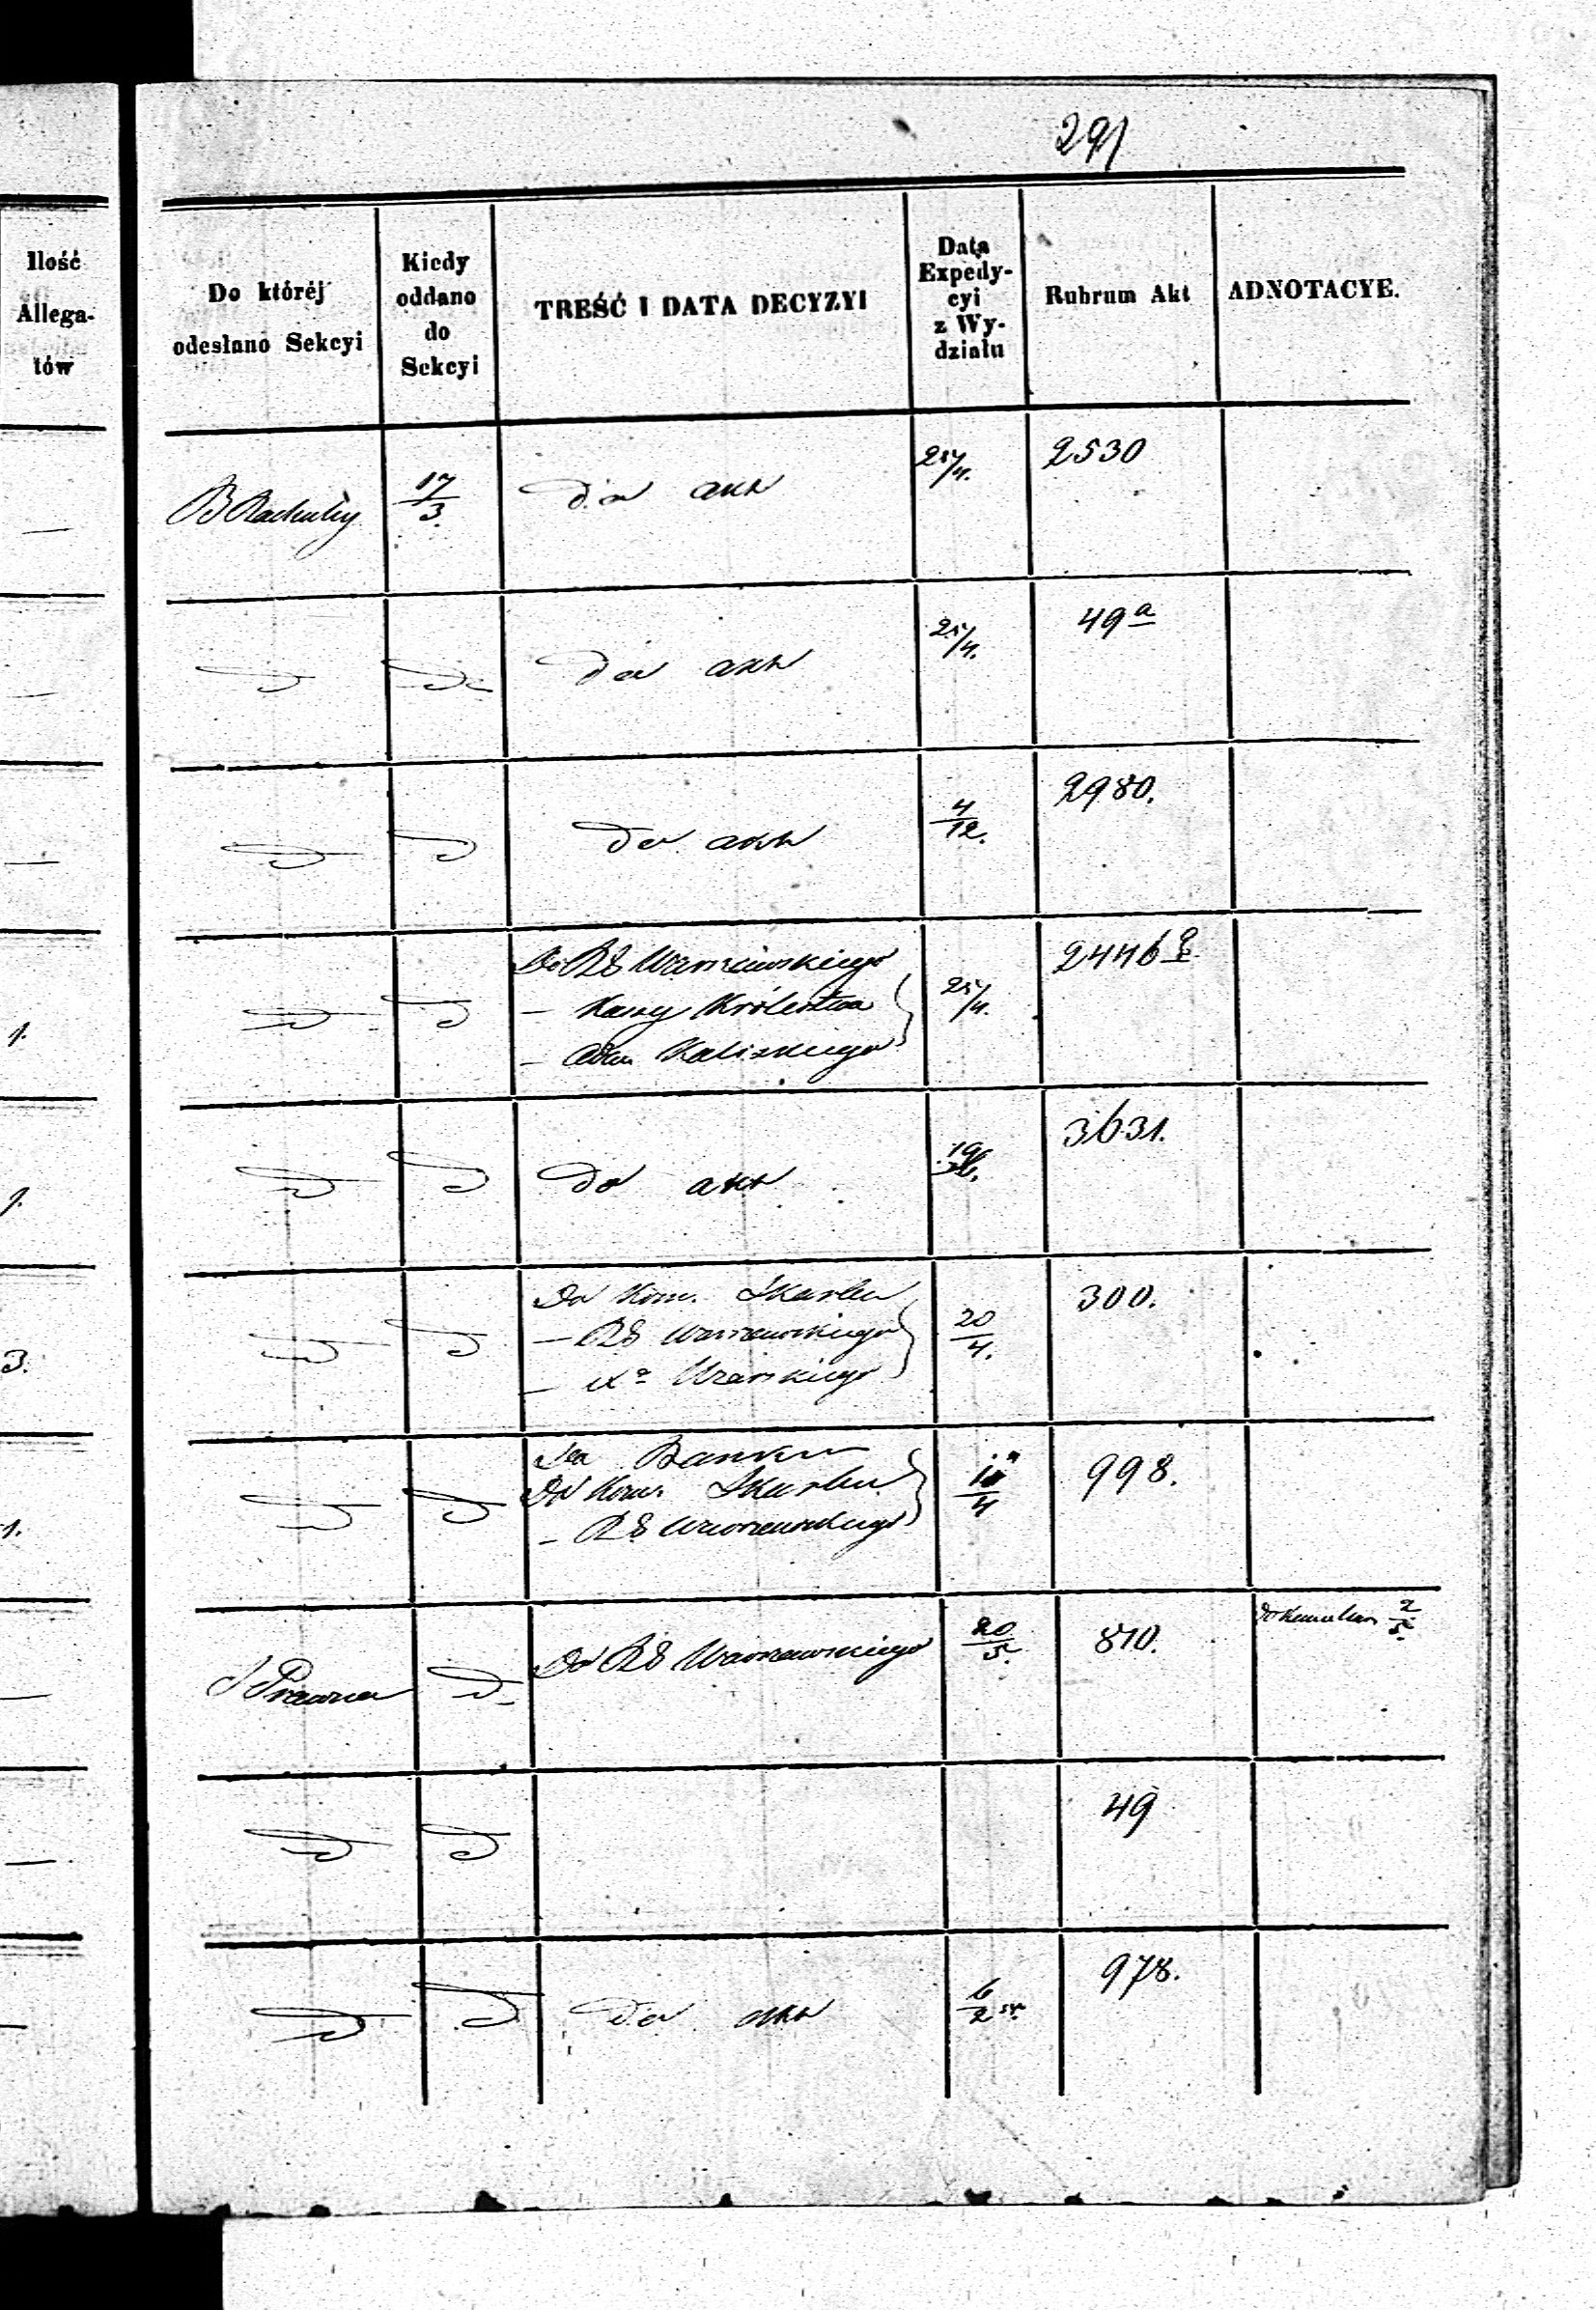 291
Ilość
Allega-
tów
Do któréj
odesłano Sekcyi
Kiedy
oddano
do
Sekcyi
TREŚĆ I DATA DECYZYI
Data
Expedy-
cyi
z Wy-
działu
Rubrum Akt
ADNOTACYE.
—
17/3.
do akt
25/4.
2530
—
do akt
25/4.
49 a
—
do akt
4/12.
2980.
1.
Do RG Warszawskiego
— Kassy Królestwa
— Kaliskiego
25/4.
2446
1.
do akt
3631.
3.
Do Kom. Skarbu
— RG Warszawskiego
—
20/4.
300.
1.
Banku
Do Kom. Skarbu
— RG Warszawskiego
/4
998.
—
S Prawna
Do RG Warszawskiego
20/5.
810.
2/5.
—
49
—
do akt
6/2
978.